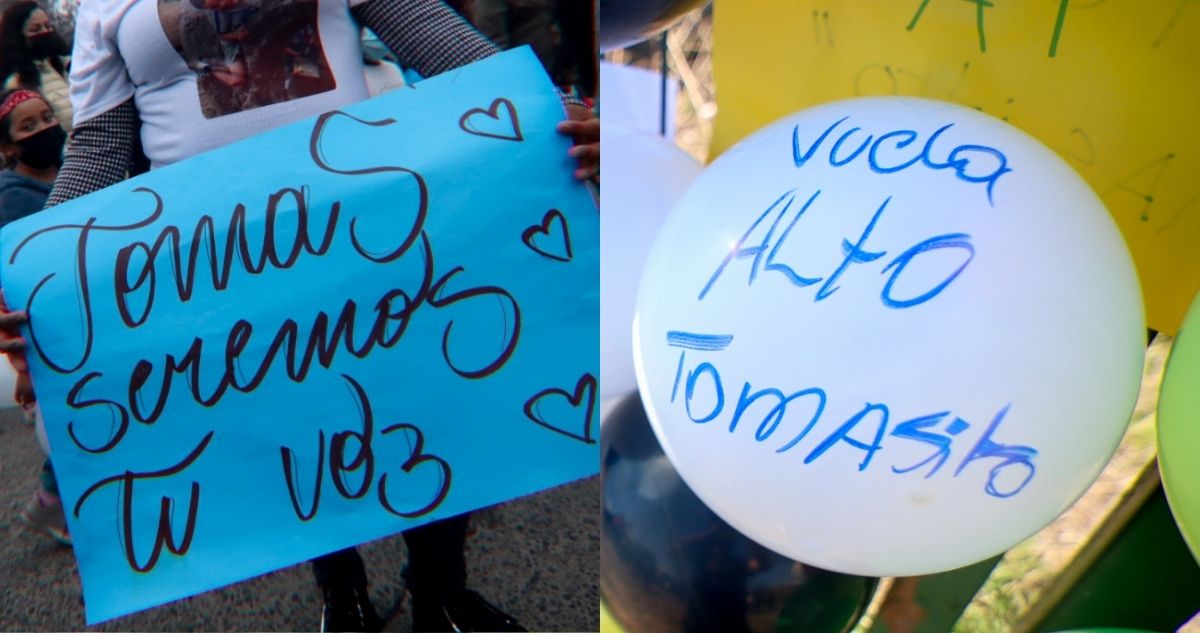 Tomas
seremos
tu voz
vuela
ALTO
TomAsito